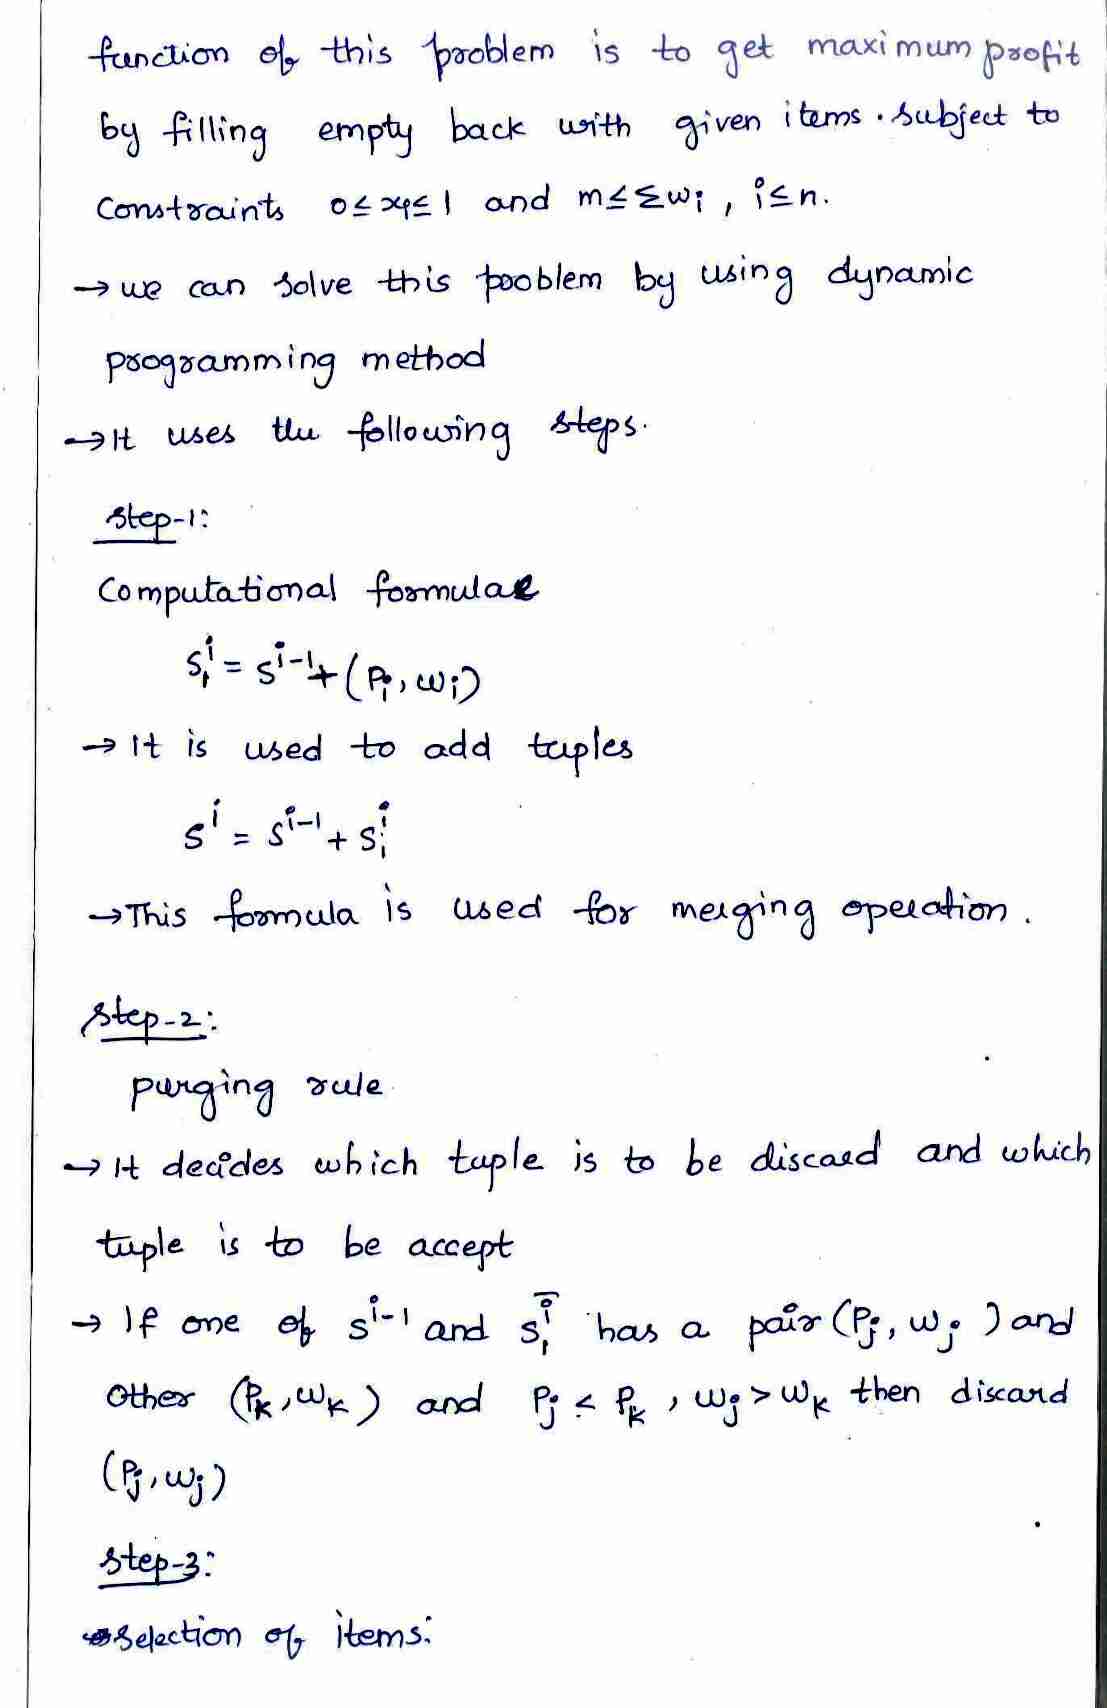 function of this problem is to get maximum profit
by filling empty back with given items. subject to
constraints 0≤xi≤1 and m≤Σwi, i≤n.
→ we can solve this problem by using dynamic
programming method
→ It uses the following steps.
step-1:
Computational formulae
S₁ⁱ = Sⁱ⁻¹ + (Pi, wi)
→ It is used to add tuples
Sⁱ = Sⁱ⁻¹ + S₁ⁱ
→ This formula is used for merging operation.
step-2:
purging rule
→ It decides which tuple is to be discard and which
tuple is to be accept
→ If one of Sⁱ⁻¹ and S₁ⁱ has a pair (Pj, wj) and
other (Pk, wk) and Pj ≤ Pk, wj > wk then discard
(Pj, wj)
step-3:
selection of items: